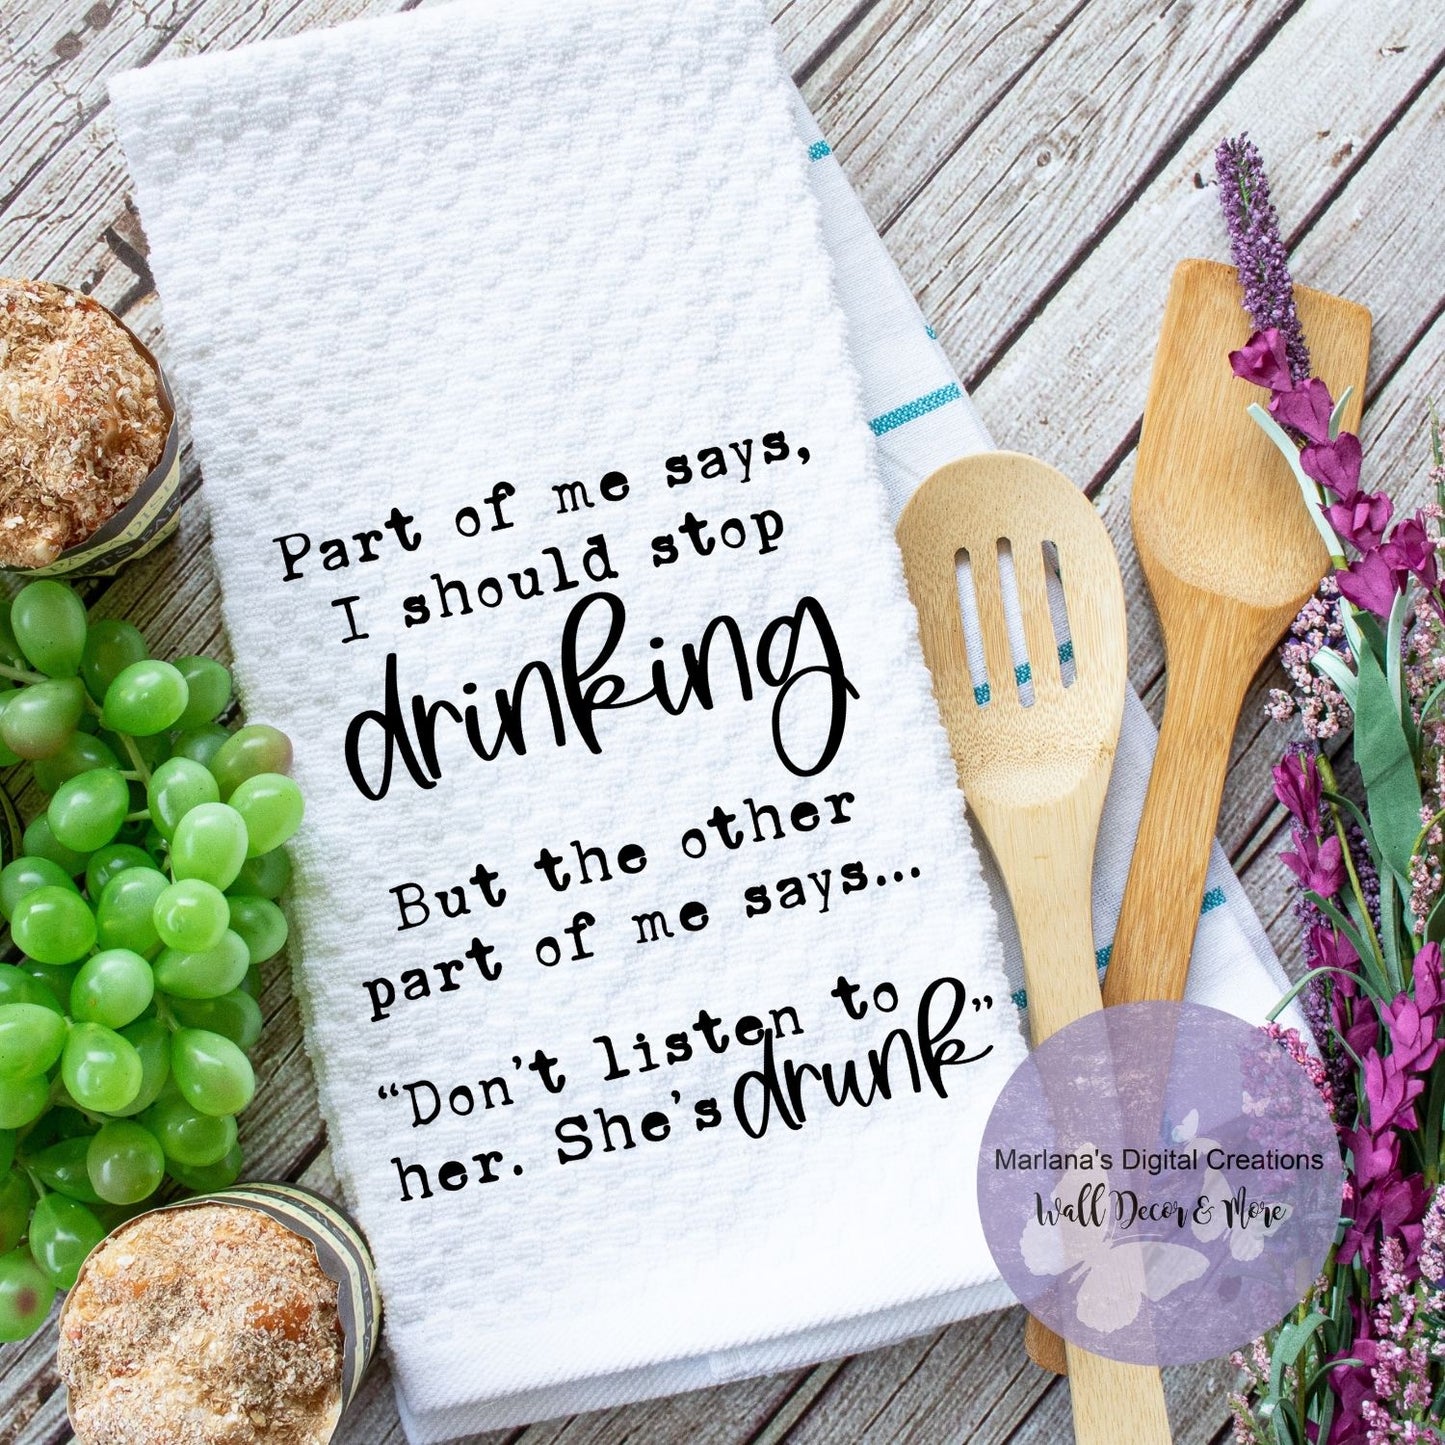 Part of me says,
I should stop
drinking
But the other
part of me says...
“Don't listen to
her. She's drunk”
Marlana's Digital Creations
Wall Decor & More